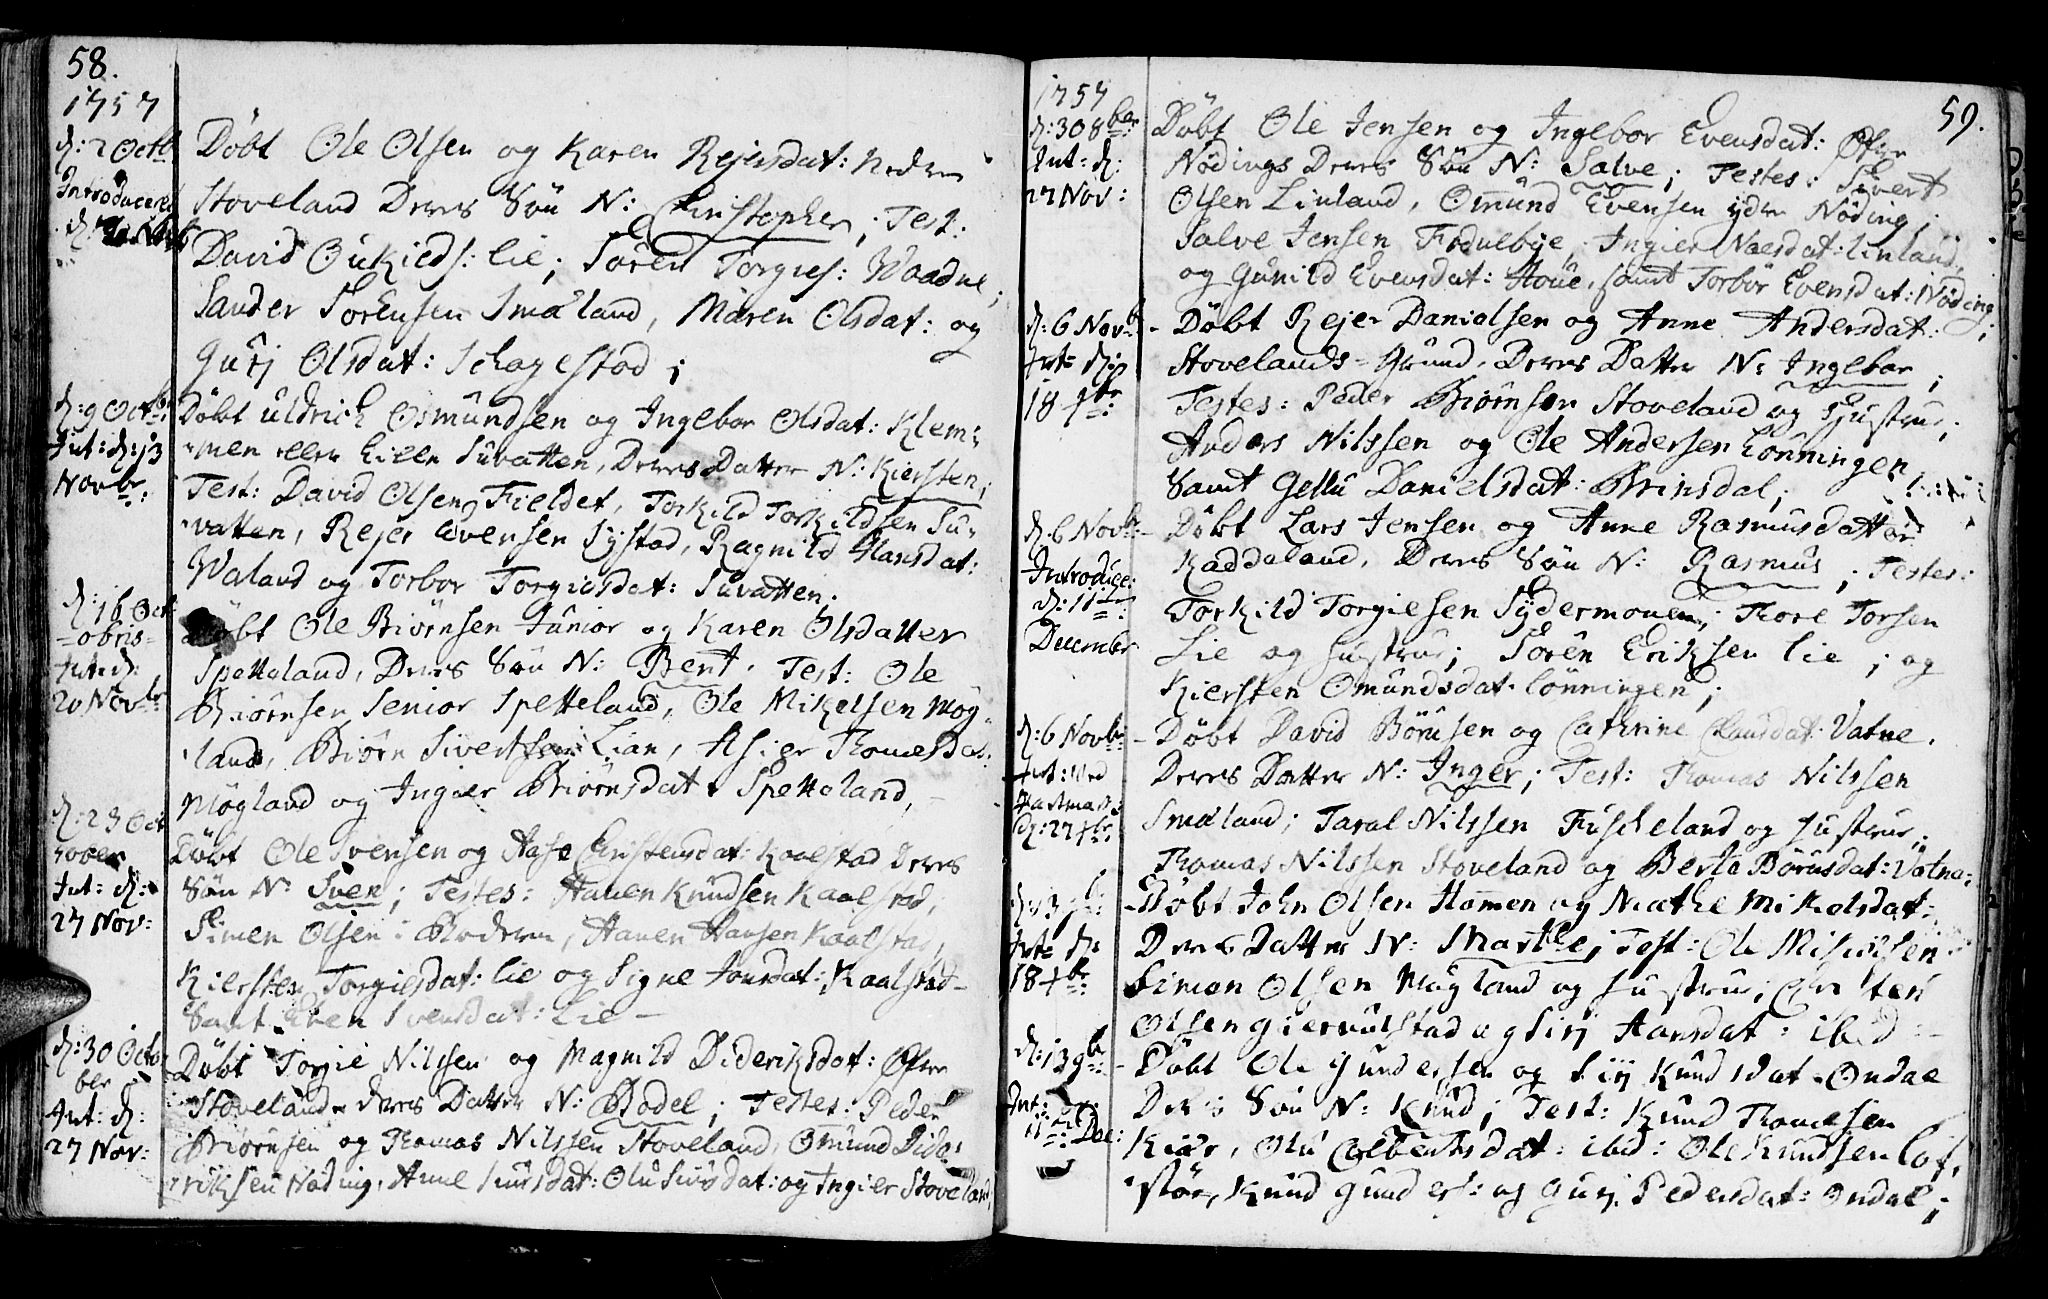 58.
1757
d: 2 Octb
Introducered
Döbt Ole Olsen og Karen Rejersdat: Nedre
Stoveland Deres Sön N: Christopher; Test:
David Oukilds: Lie; Sören Torgies: Waadne;
Sander Sörensen Smaland, Maren Olsdat: og
Gurj Olsdat: Schagestad;
d: 9 Octb:
Int: d: 13
Novbr:
Döbt Uldrich Osmundsen og Ingebor Olsdat: Klem=
=men eller Lille Suvatten, Deres Datter N: Kiersten;
Test: David Olsen Fieldet, Torkild Torkildsen Su=
=vatten, Rejer Evensen Lystad, Ragnild Hansdat:
Waland og Torbor Torgiesdat: Suvatten;
d: 16 Oct
=obris=
Int: d:
20 Novbr
Döbt Ole Biörnsen Junior og Karen Olsdatter
Spetteland, Deres Sön N: Bent. Test: Ole
Biörnsen Senior Spetteland, Ole Mikelsen Mög=
=land, Biörn Sivertsen Lian, Asier Thomesdat:
Mögland og Ingier Biörnsdat: Spetteland,
d: 23 Oct
=ober
Int: d:
27 Nov:
Döbt Ole Svensen og Aase Christensdat: Kaalstad Deres
Sön N: Sven; Testes: Haven Knudsen Kaalstad,
Simen Olsen Haven Hansen Kaalstad,
Kiersten Torgiesdat: Lie og Signe Jonsdat: Kaalstad
Samt Even Svensdat: Lie
d: 30 Octo
ber
Int: d:
27 Nov:
Döbt Torgie Nilssen og Magnild Dideriksdat: Öfre
Stoveland Deres Datter N: Bodel; Testes: Peder
Biörnsen og Thomas Nilssen Stoveland, Omund Dide=
=riksen Nöding, Anne Olu Siursdat: og Ingier Stoveland
1757
59.
d: 30 8ber
Int: d:
27 Nov:
Döbt Ole Jensen og Ingebor Evensdat: Öfre
Nödings Deres Sön N: Salve; Testes: Sivert
Olsen Linland, Omund Evensen ydre Nöding;
Salve Jensen Fodulbye, Ingier Naesdat: Linland,
og Gunild Evensdat: Houe, samt Torbor Evensdat: Nöding;
d: 6 Novb
Int: d:
18 Xbr:
Döbt Rejer Danielsen og Anne Andersdat:
Stovelands=Grund, Deres Datter N: Ingebor;
Testes: Peder Biörnsen Stoveland og Hustrue;
Anders Nilssen og Ole Andersen Lönningen,
Samt Gellu Danielsdat: Brinsdal;
d: 6 Novb:
Introduce:
d: 11te
December
Döbt Lars Jensen og Anne Rasmusdatter
Kaddeland, Deres Sön N: Rasmus; Testes:
Torkild Torgiesen Sydermouen, Thore Torsen
Lie og Hustrue; Sören Eriksen Lie; og
Kiersten Omundsdat: Lönningen;
d: 6 Novbr
Int: Ved
d: 27 Xbr:
Döbt David Börusen og Cathrine Clausdat: Vatne.
Deres Datter N: Inger; Test: Thomas Nilssen
Smaland; Taral Nilssen Fuscheland og Hustrue;
Thomas Nilssen Stoveland og Berte Börusdat: Vatne;
d: 13
Int: d:
18 Xbr
Döbt John Olsen Homen og Marthe Mikelsdat:
Deres Datter N: Marthe; Test: Ole Mikelsen
Simon Olsen Mögland og Hustrue; Christen
Olsen Giervulstad og Sirj Hansdat: ibid
d: 13 9br
Int:
11te Dec:
Döbt Ole Gundersen og Sirj Knudsdat Ondal
Deres Sön N: Knud; Test: Knud Thomesen
Kiær, Olu Colbentsdat: ibid: Ole Knudsen Lof=
=stör, Knud Gunders: og Gurj Pedersdat: Ondal;